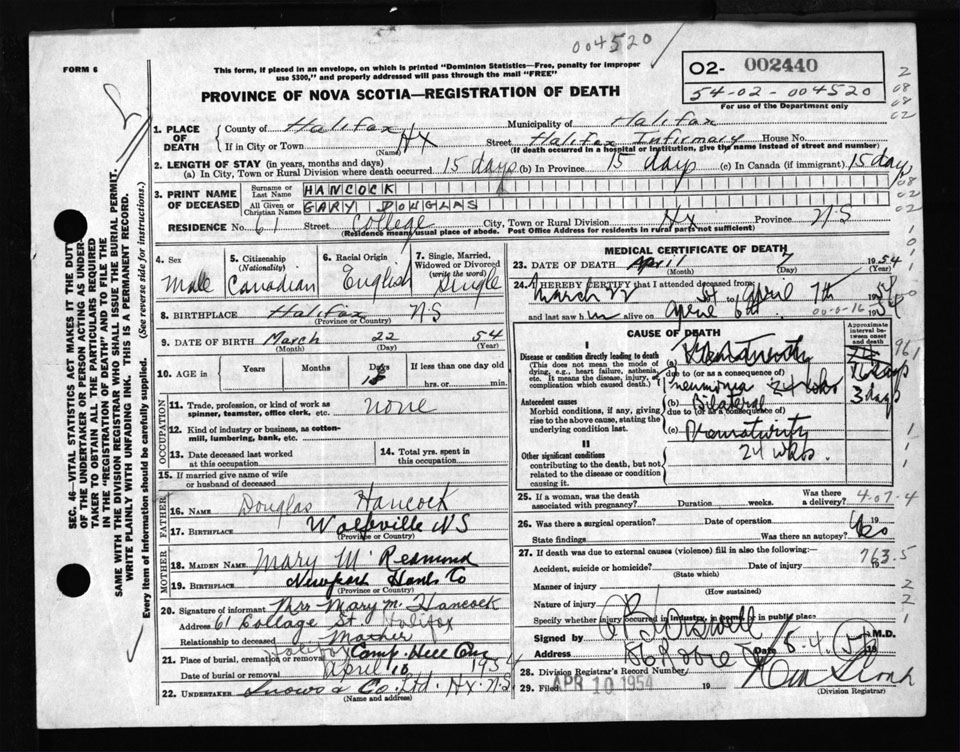 004520
FORM 6
This form, if placed in an envelope, on which is printed "Dominion Statistics—Free, penalty for improper
use $300," and properly addressed will pass through the mail "FREE"
PROVINCE OF NOVA SCOTIA—REGISTRATION OF DEATH
O2- 002440
54-02-004520
For use of the Department only
SEC. 46—VITAL STATISTICS ACT MAKES IT THE DUTY
OF THE UNDERTAKER OR PERSON ACTING AS UNDER-
TAKER TO OBTAIN ALL THE PARTICULARS REQUIRED
IN THE "REGISTRATION OF DEATH" AND TO FILE THE
SAME WITH THE DIVISION REGISTRAR WHO SHALL ISSUE THE BURIAL PERMIT.
WRITE PLAINLY WITH UNFADING INK. THIS IS A PERMANENT RECORD.
Every item of information should be carefully supplied. (See reverse side for instructions.)
1. PLACE OF DEATH County of Halifax Municipality of Halifax
If in City or Town Hx (Name) Street Halifax Infirmary House No.
(If death occurred in a hospital or institution, give the name instead of street and number)
2. LENGTH OF STAY (in years, months and days)
(a) In City, Town or Rural Division where death occurred 15 days (b) In Province 15 days (c) In Canada (if immigrant) 15 days
3. PRINT NAME OF DECEASED Surname or Last Name HANCOCK
All Given or Christian Names GARY DOUGLAS
RESIDENCE No. 61 Street College City, Town or Rural Division Hx Province N.S
(Residence means usual place of abode. Post Office Address for residents in rural parts not sufficient)
4. Sex Male
5. Citizenship (Nationality) Canadian
6. Racial Origin English
7. Single, Married, Widowed or Divorced (write the word) Single
8. BIRTHPLACE Halifax N.S
(Province or Country)
9. DATE OF BIRTH March 22 54
(Month) (Day) (Year)
10. AGE in Years Months Days If less than one day old
hrs. or min.
OCCUPATION
11. Trade, profession, or kind of work as spinner, teamster, office clerk, etc. none
12. Kind of industry or business, as cotton-mill, lumbering, bank, etc.
13. Date deceased last worked at this occupation
14. Total yrs. spent in this occupation
15. If married give name of wife or husband of deceased
FATHER
16. Name Douglas Hancock
17. Birthplace Wolfville NS
(Province or Country)
MOTHER
18. Maiden Name Mary M Redmond
19. Birthplace Newport Hants Co
(Province or Country)
20. Signature of informant Mrs Mary M. Hancock
Address 61 College St. Halifax
Relationship to deceased Mother
21. Place of burial, cremation or removal Halifax Camp Hill
Date of burial or removal April 10 1954
22. Undertaker Snows & Co. Ltd. Hx. N.S
(Name and address)
MEDICAL CERTIFICATE OF DEATH
23. DATE OF DEATH April 7 1954
(Month) (Day) (Year)
24. I HEREBY CERTIFY that I attended deceased from
March 22 54 to April 7th 1954
and last saw him alive on April 6th 1954
CAUSE OF DEATH
Approximate interval between onset and death
I
Disease or condition directly leading to death
(This does not mean the mode of dying, e.g., heart failure, asthenia, etc. It means the disease, injury, or complication which caused death.)
(a) Prematurity
due to (or as a consequence of)
Pneumonia 24 wks
Antecedent causes
Morbid conditions, if any, giving rise to the above cause, stating the underlying condition last.
(b) Bilateral 3 days
due to (or as a consequence of)
(c) Prematurity
24 wks.
II
Other significant conditions
contributing to the death, but not related to the disease or condition causing it.
25. If a woman, was the death associated with pregnancy? Duration weeks. Was there a delivery? 4-07-4
26. Was there a surgical operation? Date of operation 19
State findings Was there an autopsy? No
27. If death was due to external causes (violence) fill in also the following: 763.5
Accident, suicide or homicide? (State which) 19
Manner of injury (How sustained)
Nature of injury
Specify whether injury occurred in industry, in home, or in public place
Signed by M.D.
Address Date 8-4-54
28. Division Registrar's Record Number
29. Filed APR 10 1954 19
(Division Registrar)